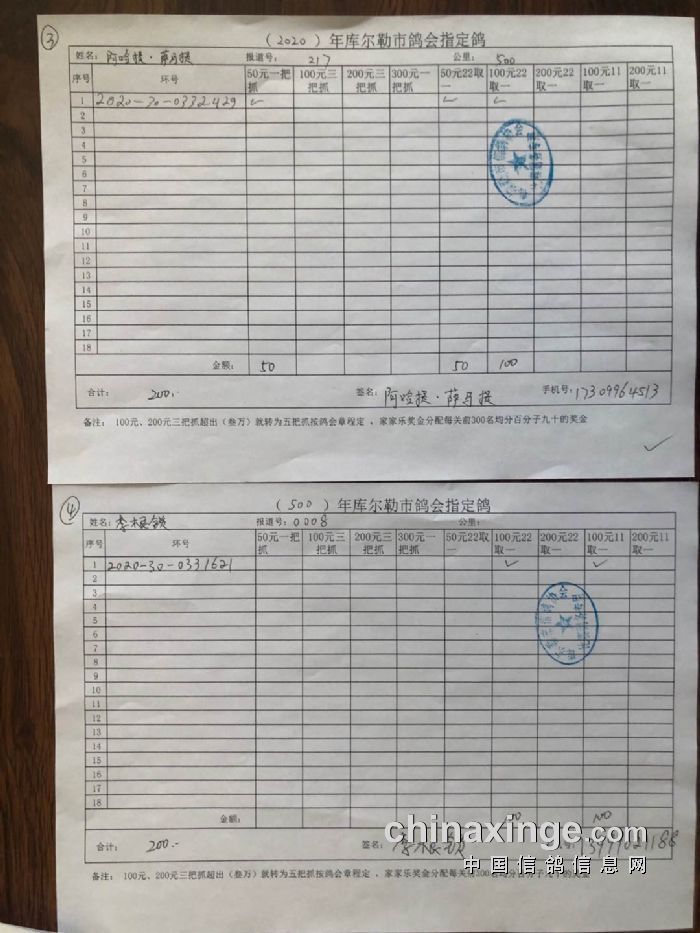 ③
(2020)年库尔勒市鸽会指定鸽
姓名: 阿哈提·萨马提 报道号: 217 公里: 500
序号 环号 50元一把抓 100元三把抓 200元三把抓 300元一把抓 50元22取一 100元22取一 200元22取一 100元11取一 200元11取一
1 2020-30-0332429 ✓ ✓ ✓
2
3
4
5
6
7
8
9
10
11
12
13
14
15
16
17
18
金额: 50 50 100
合计: 200.- 签名: 阿哈提·萨马提 手机号: 17309964513
备注: 100元、200元三把抓超出(叁万)就转为五把抓按鸽会章程定 、家家乐奖金分配每关前300名均分百分子九十的奖金
✓
④
(500)年库尔勒市鸽会指定鸽
姓名: 李根锁 报道号: 0008 公里:
序号 环号 50元一把抓 100元三把抓 200元三把抓 300元一把抓 50元22取一 100元22取一 200元22取一 100元11取一 200元11取一
1 2020-30-0331621 ✓ ✓
2
3
4
5
6
7
8
9
10
11
12
13
14
15
16
17
18
金额: 100 100
合计: 200.- 签名: 李根锁
备注: 100元、200元三把抓超出(叁万)就转为五把抓按鸽会章程定 、家家乐奖金分配每关前300名均分百分子九十的奖金
chinaxinge.com
中国信鸽信息网